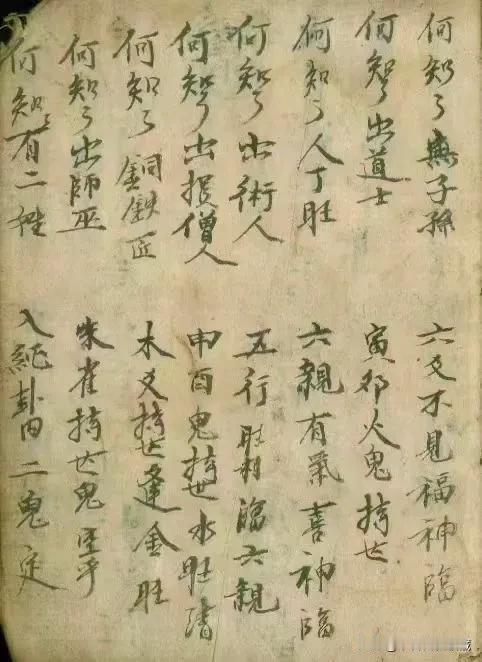 何知了無子孫　六爻不見福神臨
何知了出道士　寅卯火鬼持世
何知了人丁旺　六親有氣喜神臨
何知了出術人　五行旺相臨六親
何知了出損僧人　申酉鬼持世水旺清
何知了銅鐵匠　木爻持世逢金旺
何知了出師巫　朱雀持世鬼坐乎
何知有二姓　入純卦內二鬼定